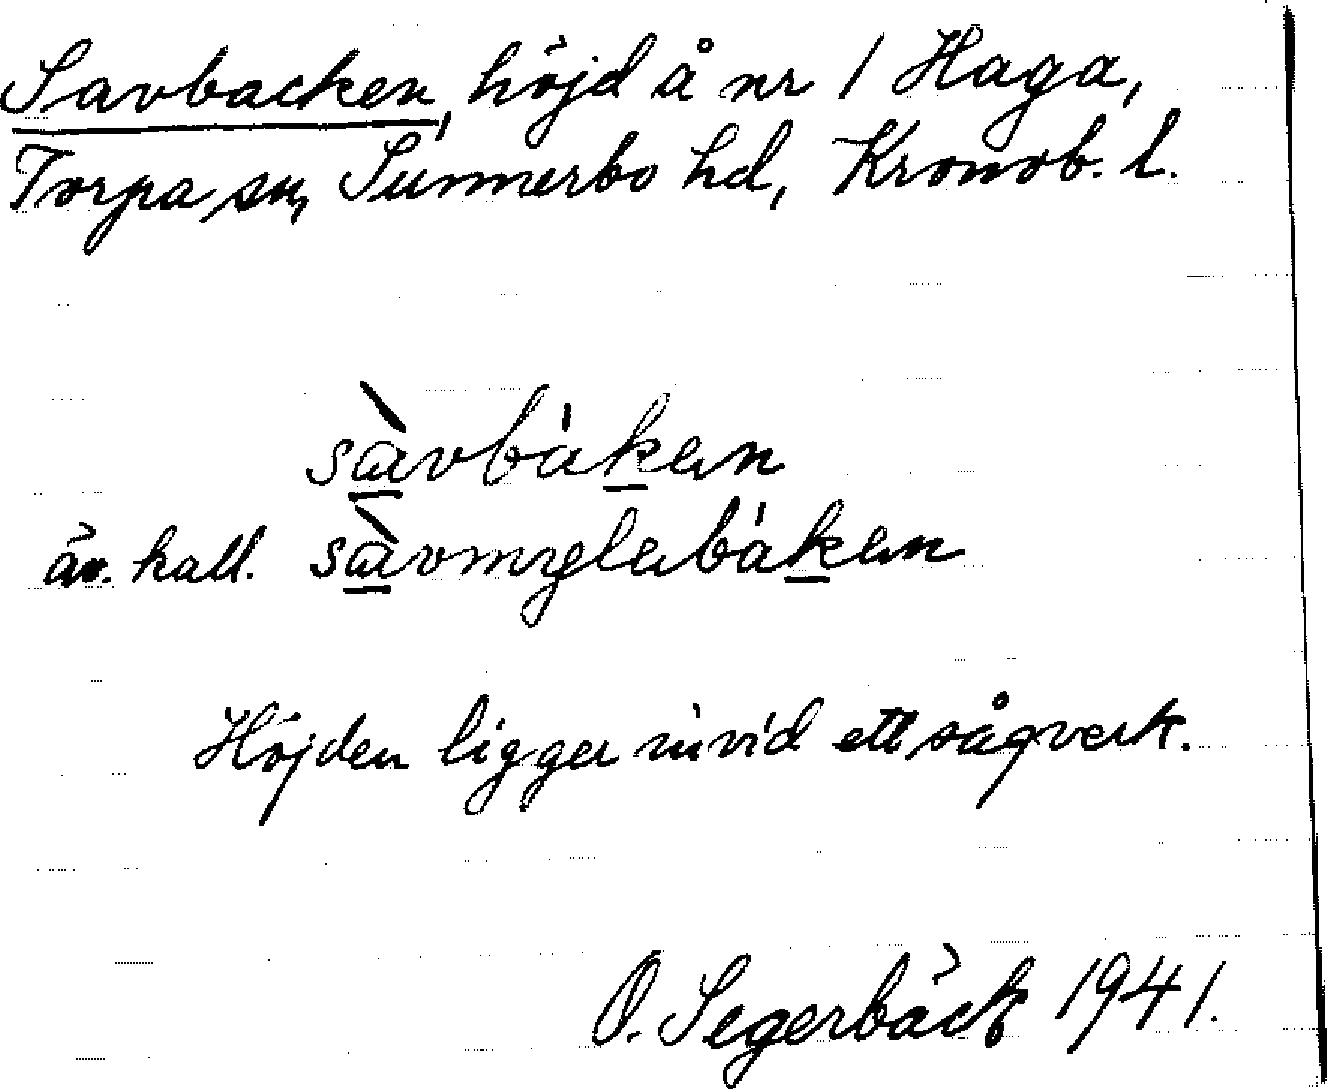 Savbacken, höjd å nr 1 Haga,
Torpa sn, Sunnerbo hd, Kronob. l.
sàvbákən
äv. kall. sàvmyləbákən
Höjden ligger invid ett sågverk.
O. Segerbäck 1941.